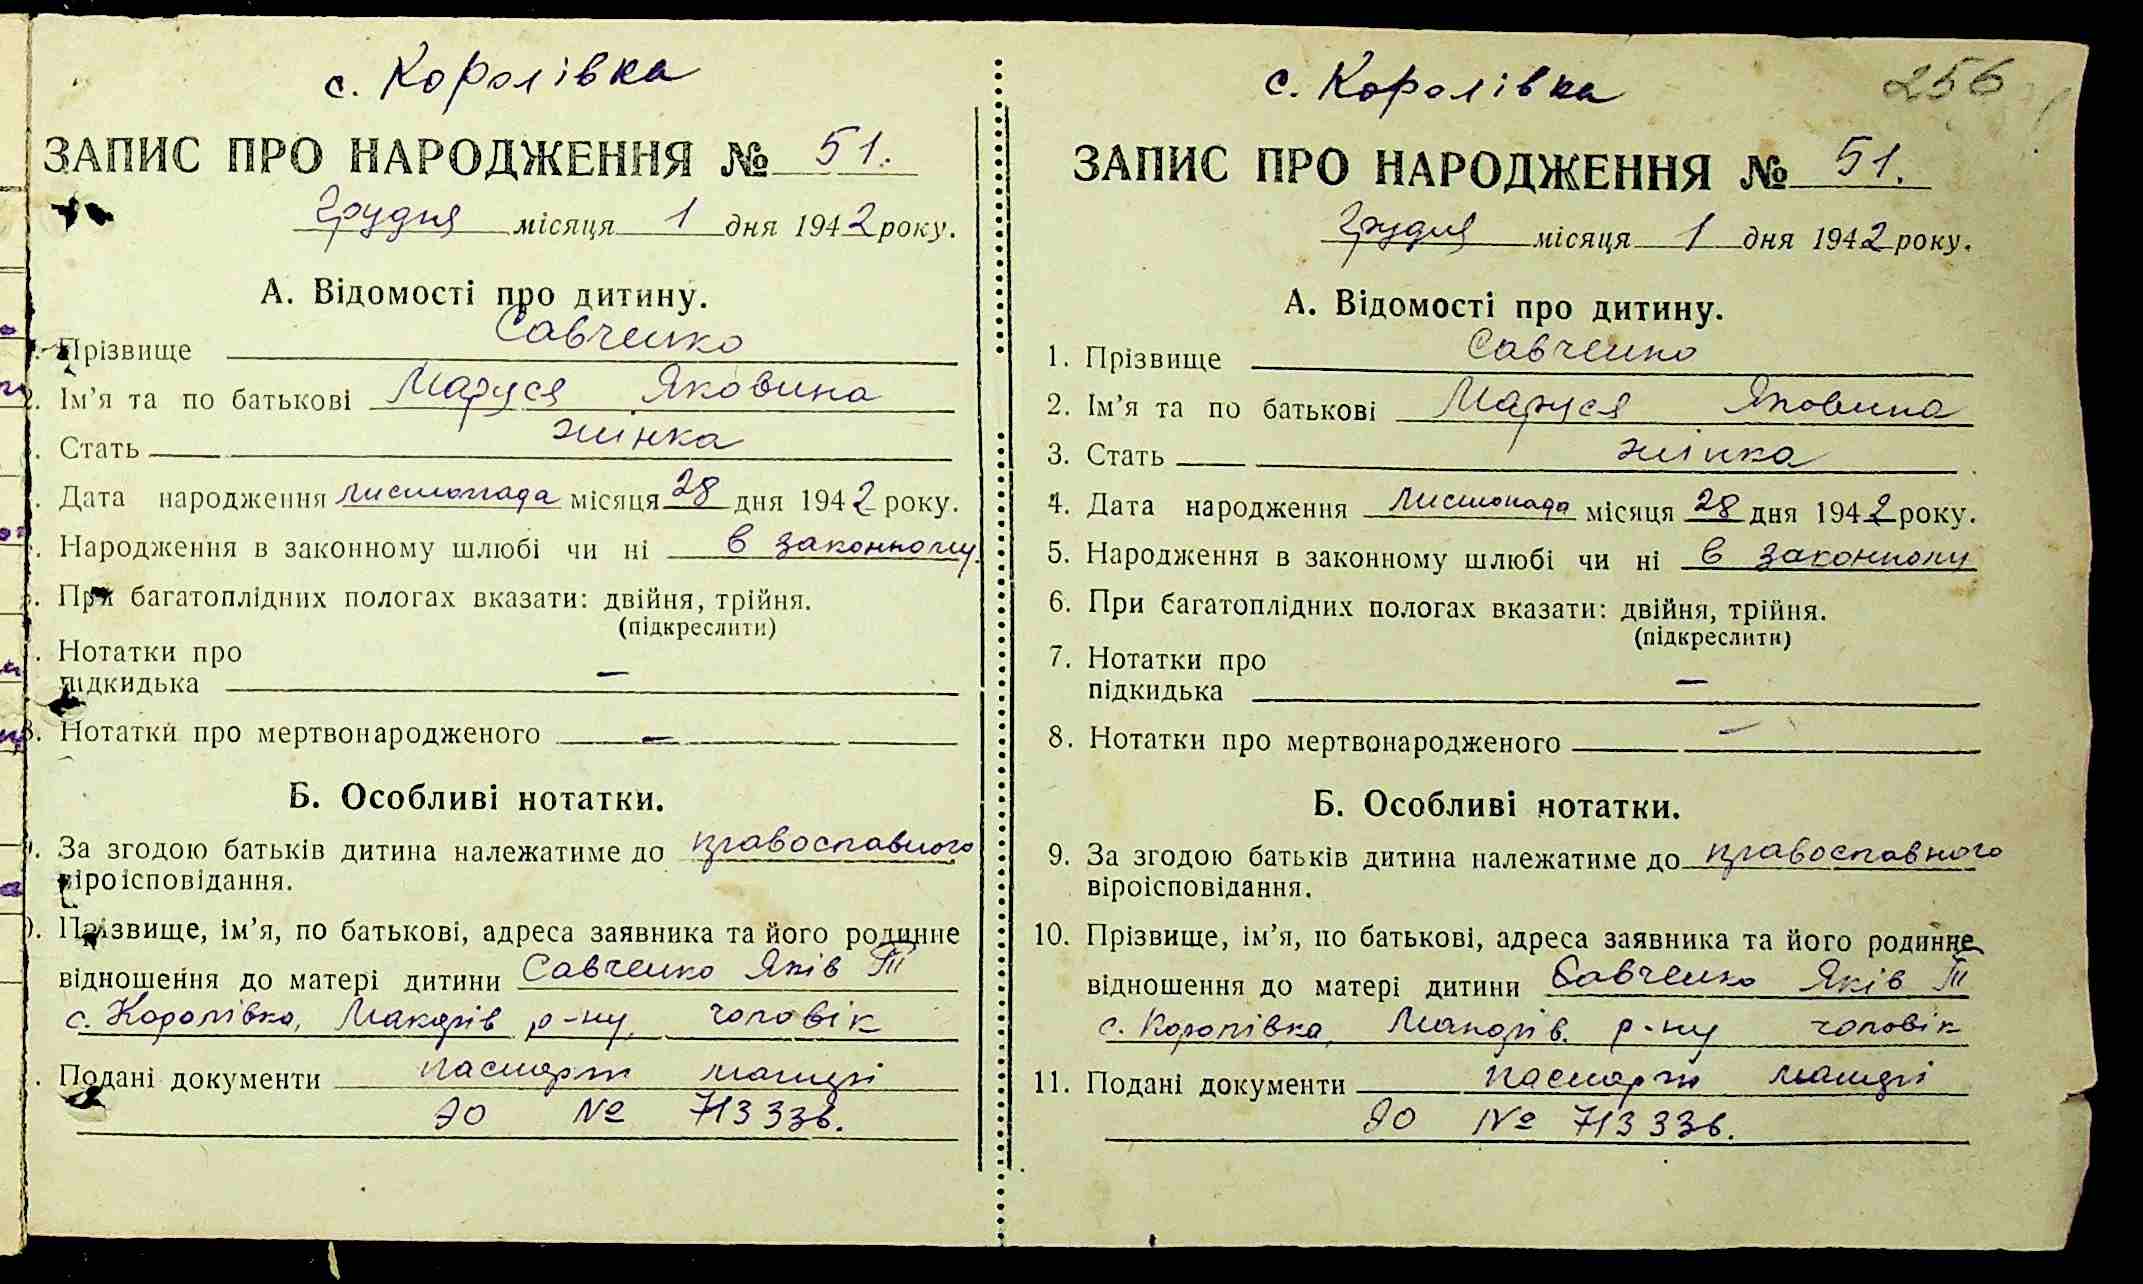 с. Королівка
ЗАПИС ПРО НАРОДЖЕННЯ № 51.
Грудня місяця 1 дня 1942 року.
А. Відомості про дитину.
Прізвище Савченко
2. Ім'я та по батькові Маруся Яковина
Стать жінка
Дата народження листопада місяця 28 дня 1942 року.
Народження в законному шлюбі чи ні в законному
При багатоплідних пологах вказати: двійня, трійня.
(підкреслити)
Нотатки про
підкидька —
8. Нотатки про мертвонародженого —
Б. Особливі нотатки.
За згодою батьків дитина належатиме до православного
віроісповідання.
Прізвище, ім'я, по батькові, адреса заявника та його родинне
відношення до матері дитини Савченко Яків Т
с. Королівка, Макарів р-ну, чоловік
Подані документи паспорт матері
ЯО № 713336.
256
с. Королівка
ЗАПИС ПРО НАРОДЖЕННЯ № 51.
Грудня місяця 1 дня 1942 року.
А. Відомості про дитину.
1. Прізвище Савченко
2. Ім'я та по батькові Маруся Яковина
3. Стать жінка
4. Дата народження листопада місяця 28 дня 1942 року.
5. Народження в законному шлюбі чи ні в законному
6. При багатоплідних пологах вказати: двійня, трійня.
(підкреслити)
7. Нотатки про
підкидька —
8. Нотатки про мертвонародженого —
Б. Особливі нотатки.
9. За згодою батьків дитина належатиме до православного
віроісповідання.
10. Прізвище, ім'я, по батькові, адреса заявника та його родинне
відношення до матері дитини Савченко Яків Т
с. Королівка, Макарів. р-ну чоловік
11. Подані документи паспорт матері
ЯО № 713336.